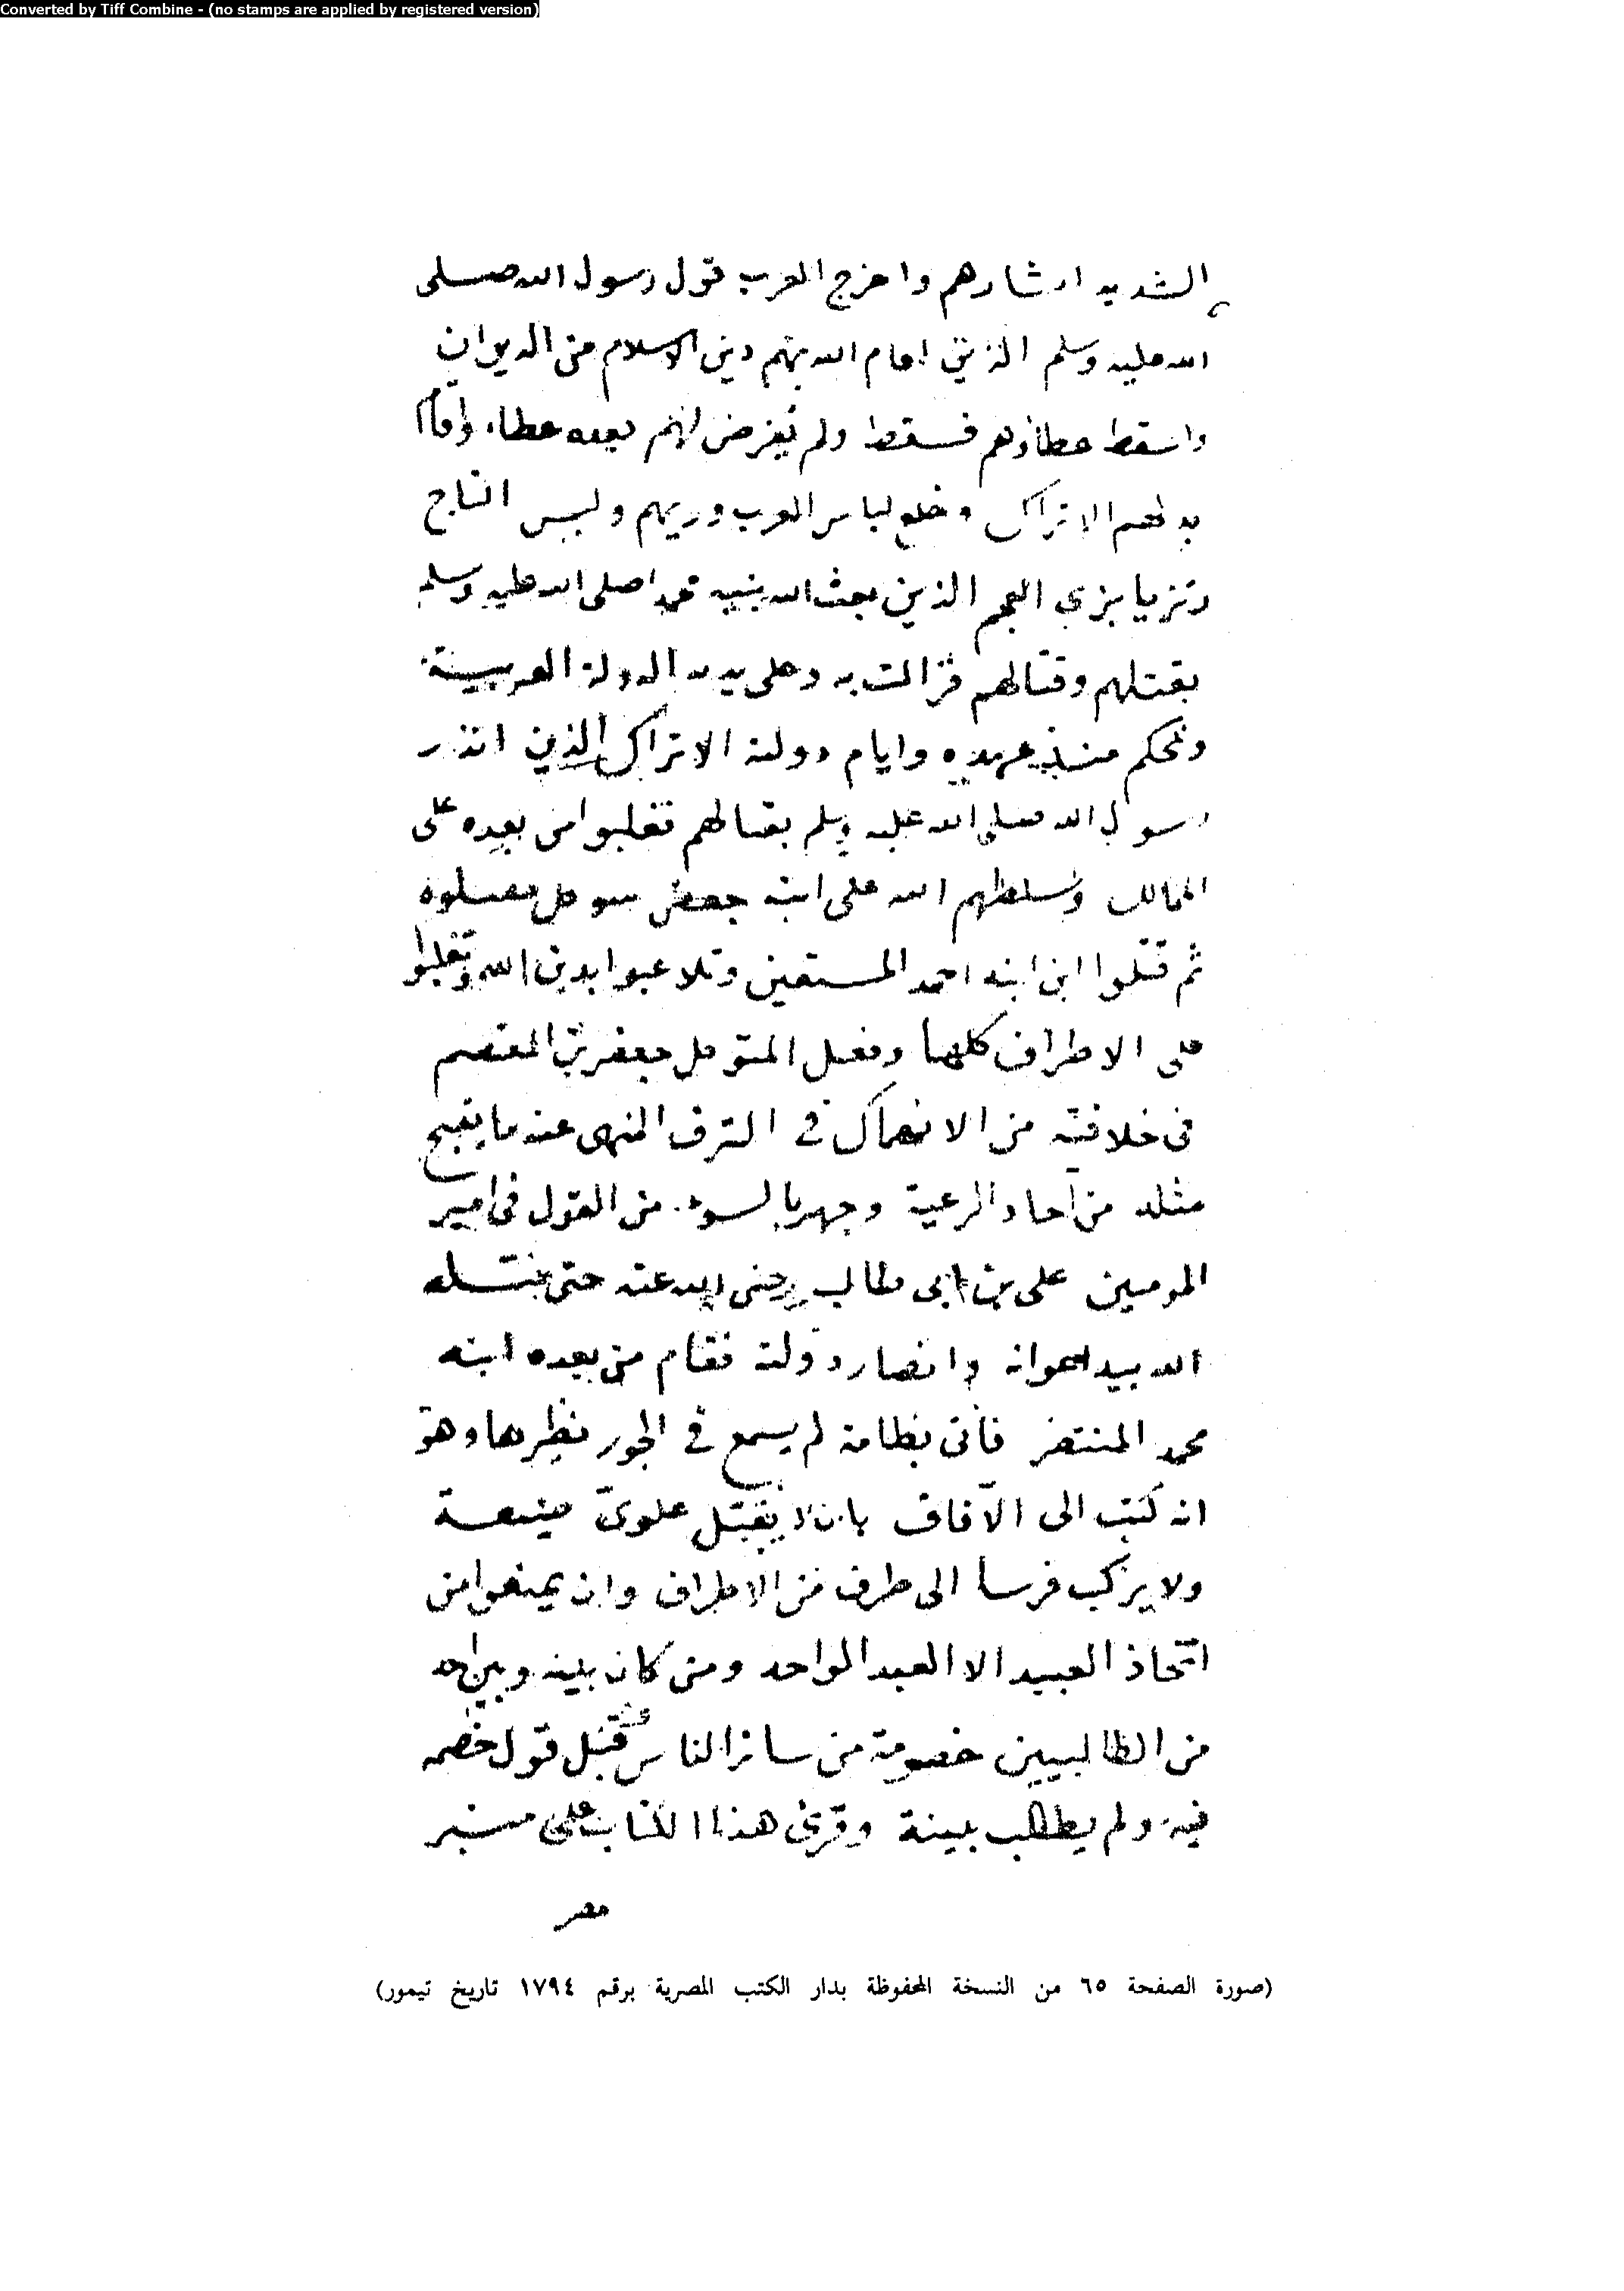 Converted by Tiff Combine - (no stamps are applied by registered version)
الشديد وا خرج العرب قول رسول الله صلى
الله عليه وسلم الذين اقام الله بهم دين الاسلام من الديوان
واسقط عطاؤهم فسقط ولم يفرض لهم بعده عطاء واقام
بدلهم الاتراك وخلع لباس العرب وزيهم ولبس التاج
وتزيا بزي العجم الذين بعث الله نبيه محمدا صلى الله عليه وسلم
بقتلهم وقتالهم فزالت به وعلى يديه الدولة العربية
وتحكم منذ عهده وايام دولته الاتراك الذين انذر
رسول الله صلى الله عليه وسلم بقتالهم فغلبوا من بعده على
الممالك وسلطهم الله على ابنه جعفر فقتلوه
ثم قتلوا ابن ابنه احمد المستعين وتلاعبوا بدين الله وتغلبوا
على الاطراف كلها وفعل المتوكل جعفر بن المعتصم
فى خلافته من الانهماك في الترف المنهى عنه ما يقبح
مثله من آحاد الرعية وجهر بالسوء من القول فى امير
المومنين على بن ابى طالب رضى الله عنه حتى قتله
الله بيد اعوانه وانصار دولته فقام من بعده ابنه
محمد المنتصر فأتى بطامة لم يسمع في الجور نظيرها وهو
انه كتب الى الآفاق بان لا يقبل علوى ضيعة
ولا يركب فرسا الى طرف من الاطراف وان يمنعوا من
اتخاذ العبيد الا العبد الواحد ومن كان بينه وبين احد
من الطالبيين خصومة من سائر الناس قبل قول خصمه
فيه ولم يطالب ببينة وقرئ هذا الكتاب على منبر
مصر
(صورة الصفحة ٦٥ من النسخة المحفوظة بدار الكتب المصرية برقم ١٧٩٤ تاريخ تيمور)